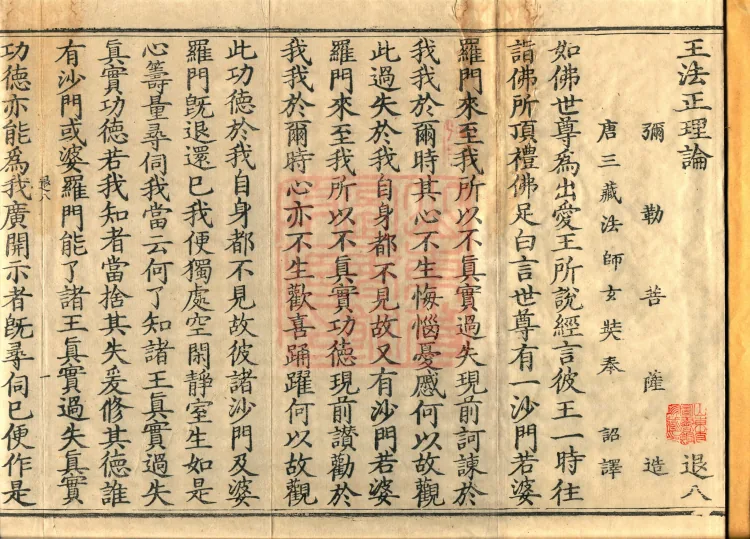 王法正理論 退八
彌勒菩薩造
唐三藏法師玄奘奉 詔譯
如佛世尊為出愛王所說經言彼王一時往
詣佛所頂禮佛足白言世尊有一沙門若婆
羅門來至我所以不真實過失現前訶諫於
我我於爾時其心不生悔惱憂慼何以故觀
此過失於我自身都不見故又有沙門若婆
羅門來至我所以不真實功德現前讚勸於
我我於爾時心亦不生歡喜踊躍何以故觀
此功德於我自身都不見故彼諸沙門及婆
羅門既退還已我便獨處空閑靜室生如是
心籌量尋伺我當云何了知諸王真實過失
真實功德若我知者當捨其失爰修其德誰
有沙門或婆羅門能了諸王真實過失真實
退八 一
功德亦能為我廣開示者既尋伺已便作是